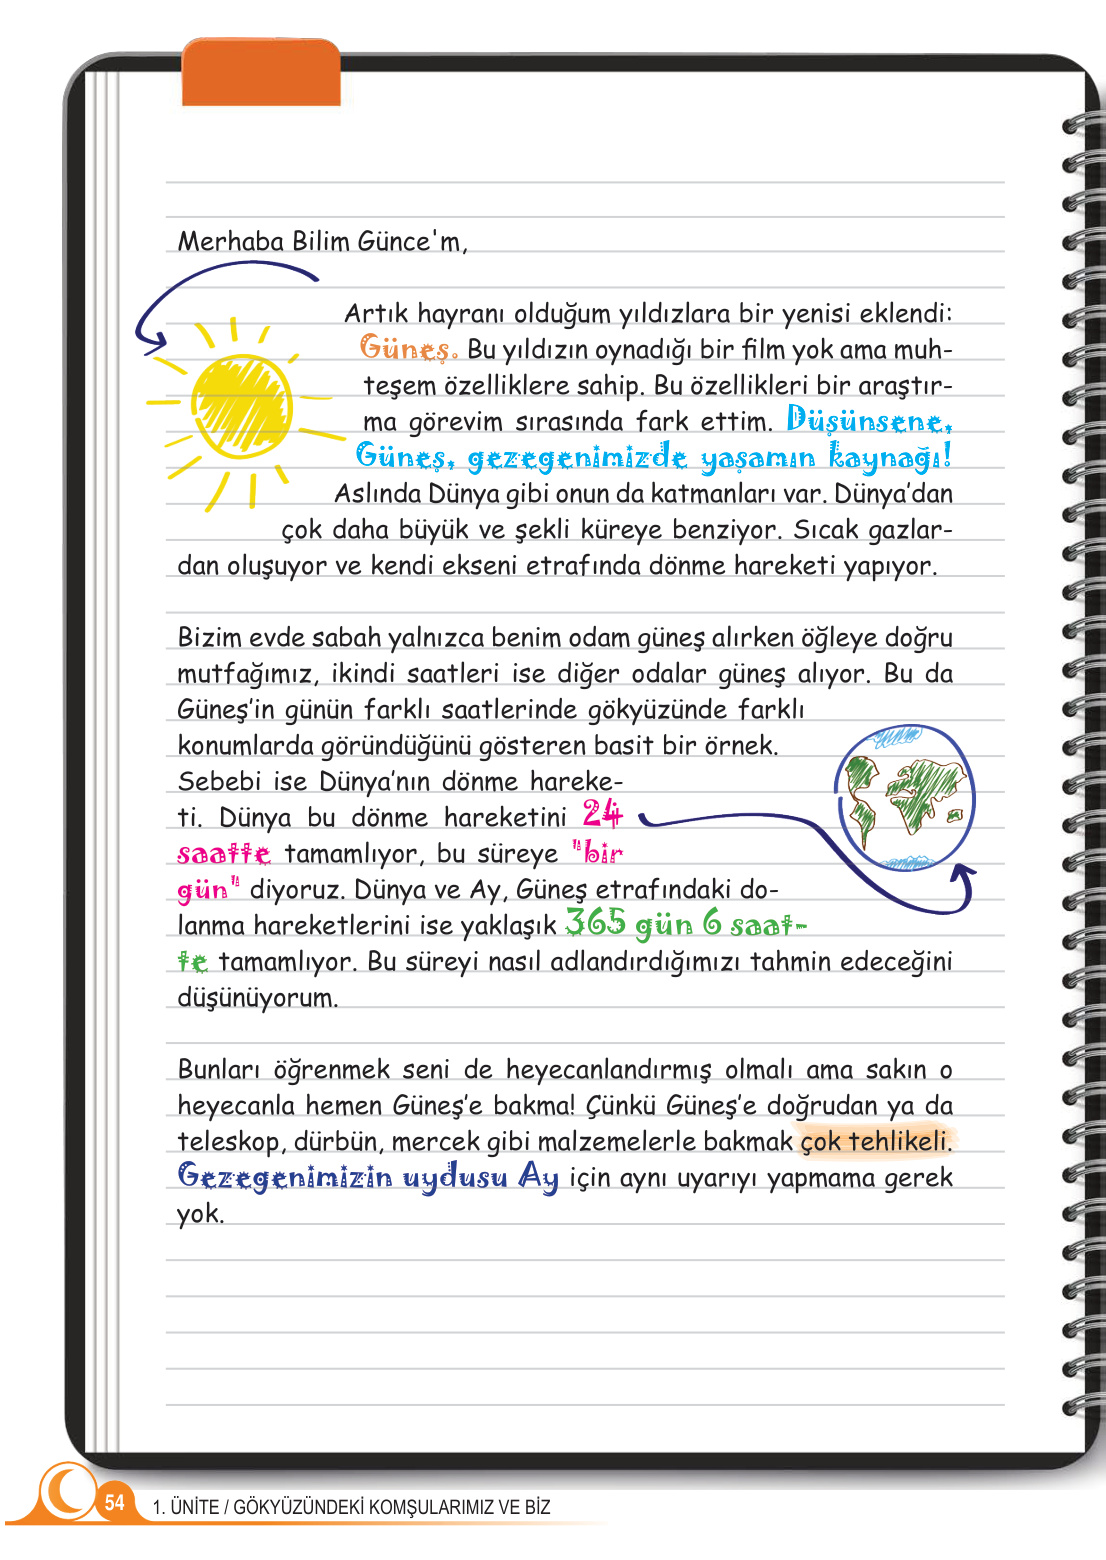 Merhaba Bilim Günce'm,
Artık hayranı olduğum yıldızlara bir yenisi eklendi:
Güneş. Bu yıldızın oynadığı bir film yok ama muh-
teşem özelliklere sahip. Bu özellikleri bir araştır-
ma görevim sırasında fark ettim. Düşünsene,
Güneş, gezegenimizde yaşamın kaynağı!
Aslında Dünya gibi onun da katmanları var. Dünya’dan
çok daha büyük ve şekli küreye benziyor. Sıcak gazlar-
dan oluşuyor ve kendi ekseni etrafında dönme hareketi yapıyor.
Bizim evde sabah yalnızca benim odam güneş alırken öğleye doğru
mutfağımız, ikindi saatleri ise diğer odalar güneş alıyor. Bu da
Güneş’in günün farklı saatlerinde gökyüzünde farklı
konumlarda göründüğünü gösteren basit bir örnek.
Sebebi ise Dünya’nın dönme hareke-
ti. Dünya bu dönme hareketini 24
saatte tamamlıyor, bu süreye "bir
gün" diyoruz. Dünya ve Ay, Güneş etrafındaki do-
lanma hareketlerini ise yaklaşık 365 gün 6 saat-
te tamamlıyor. Bu süreyi nasıl adlandırdığımızı tahmin edeceğini
düşünüyorum.
Bunları öğrenmek seni de heyecanlandırmış olmalı ama sakın o
heyecanla hemen Güneş’e bakma! Çünkü Güneş’e doğrudan ya da
teleskop, dürbün, mercek gibi malzemelerle bakmak çok tehlikeli.
Gezegenimizin uydusu Ay için aynı uyarıyı yapmama gerek
yok.
54 1. ÜNİTE / GÖKYÜZÜNDEKİ KOMŞULARIMIZ VE BİZ